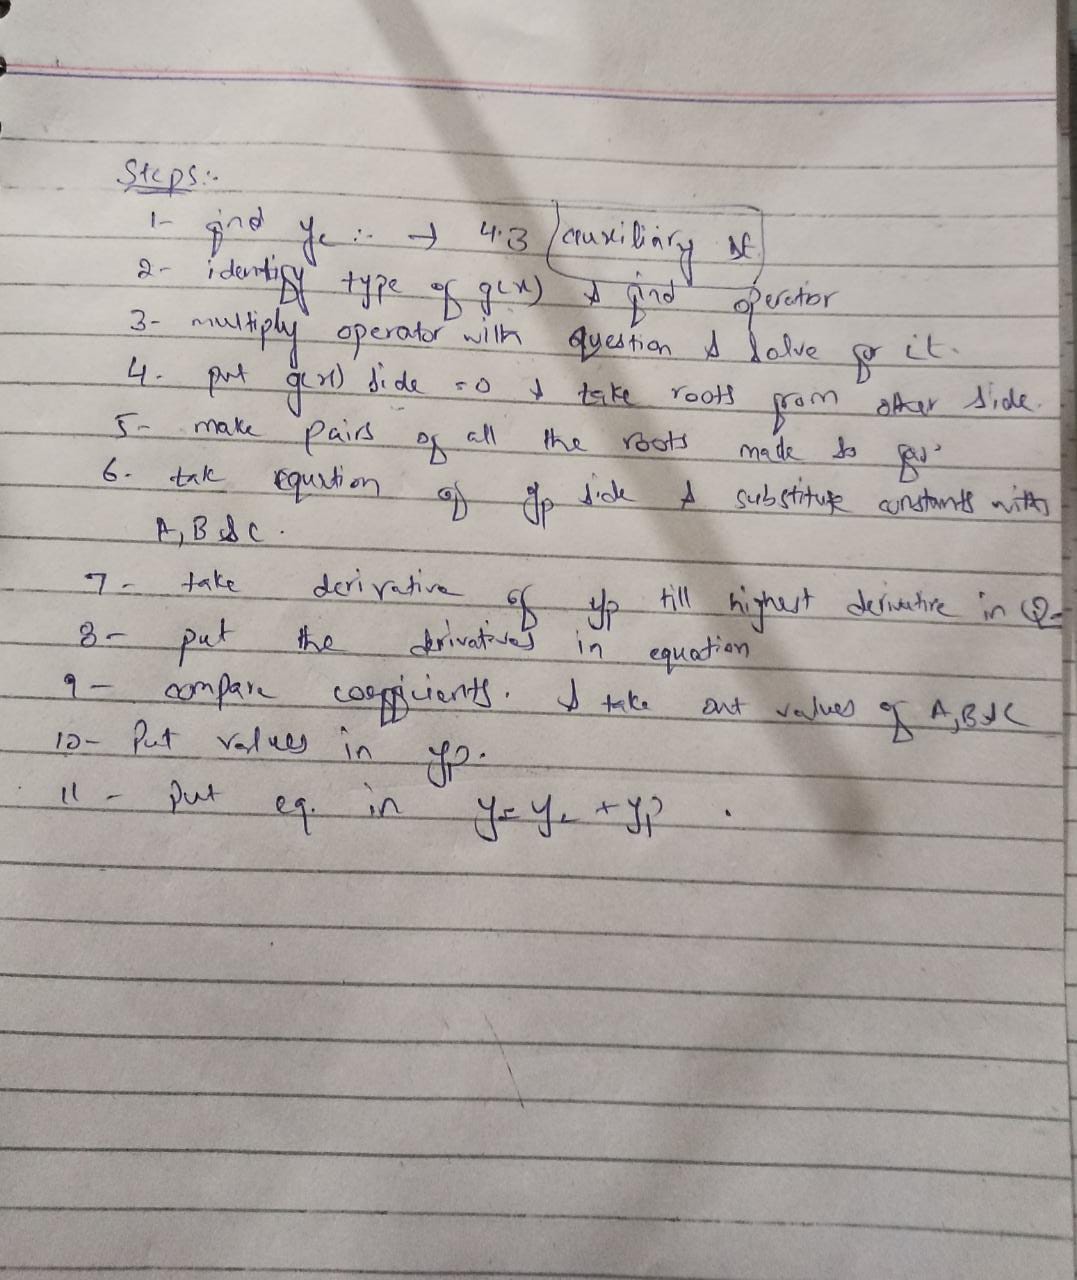 Steps:-
1- find yc :- → 4.3 auxiliary
2- identify type of g(x) & find operator
3- multiply operator with question & solve for it.
4- put g(x) side = 0 & take roots from other side.
5- make pairs of all the roots made so far
6- take equation of yp side & substitute constants with
A, B & C.
7- take derivative of yp till highest derivative in Q-
8- put the derivatives in equation
9- compare coefficients. & take out values of A, B & C
10- Put values in yp.
11- Put eq. in y = yc + yp .